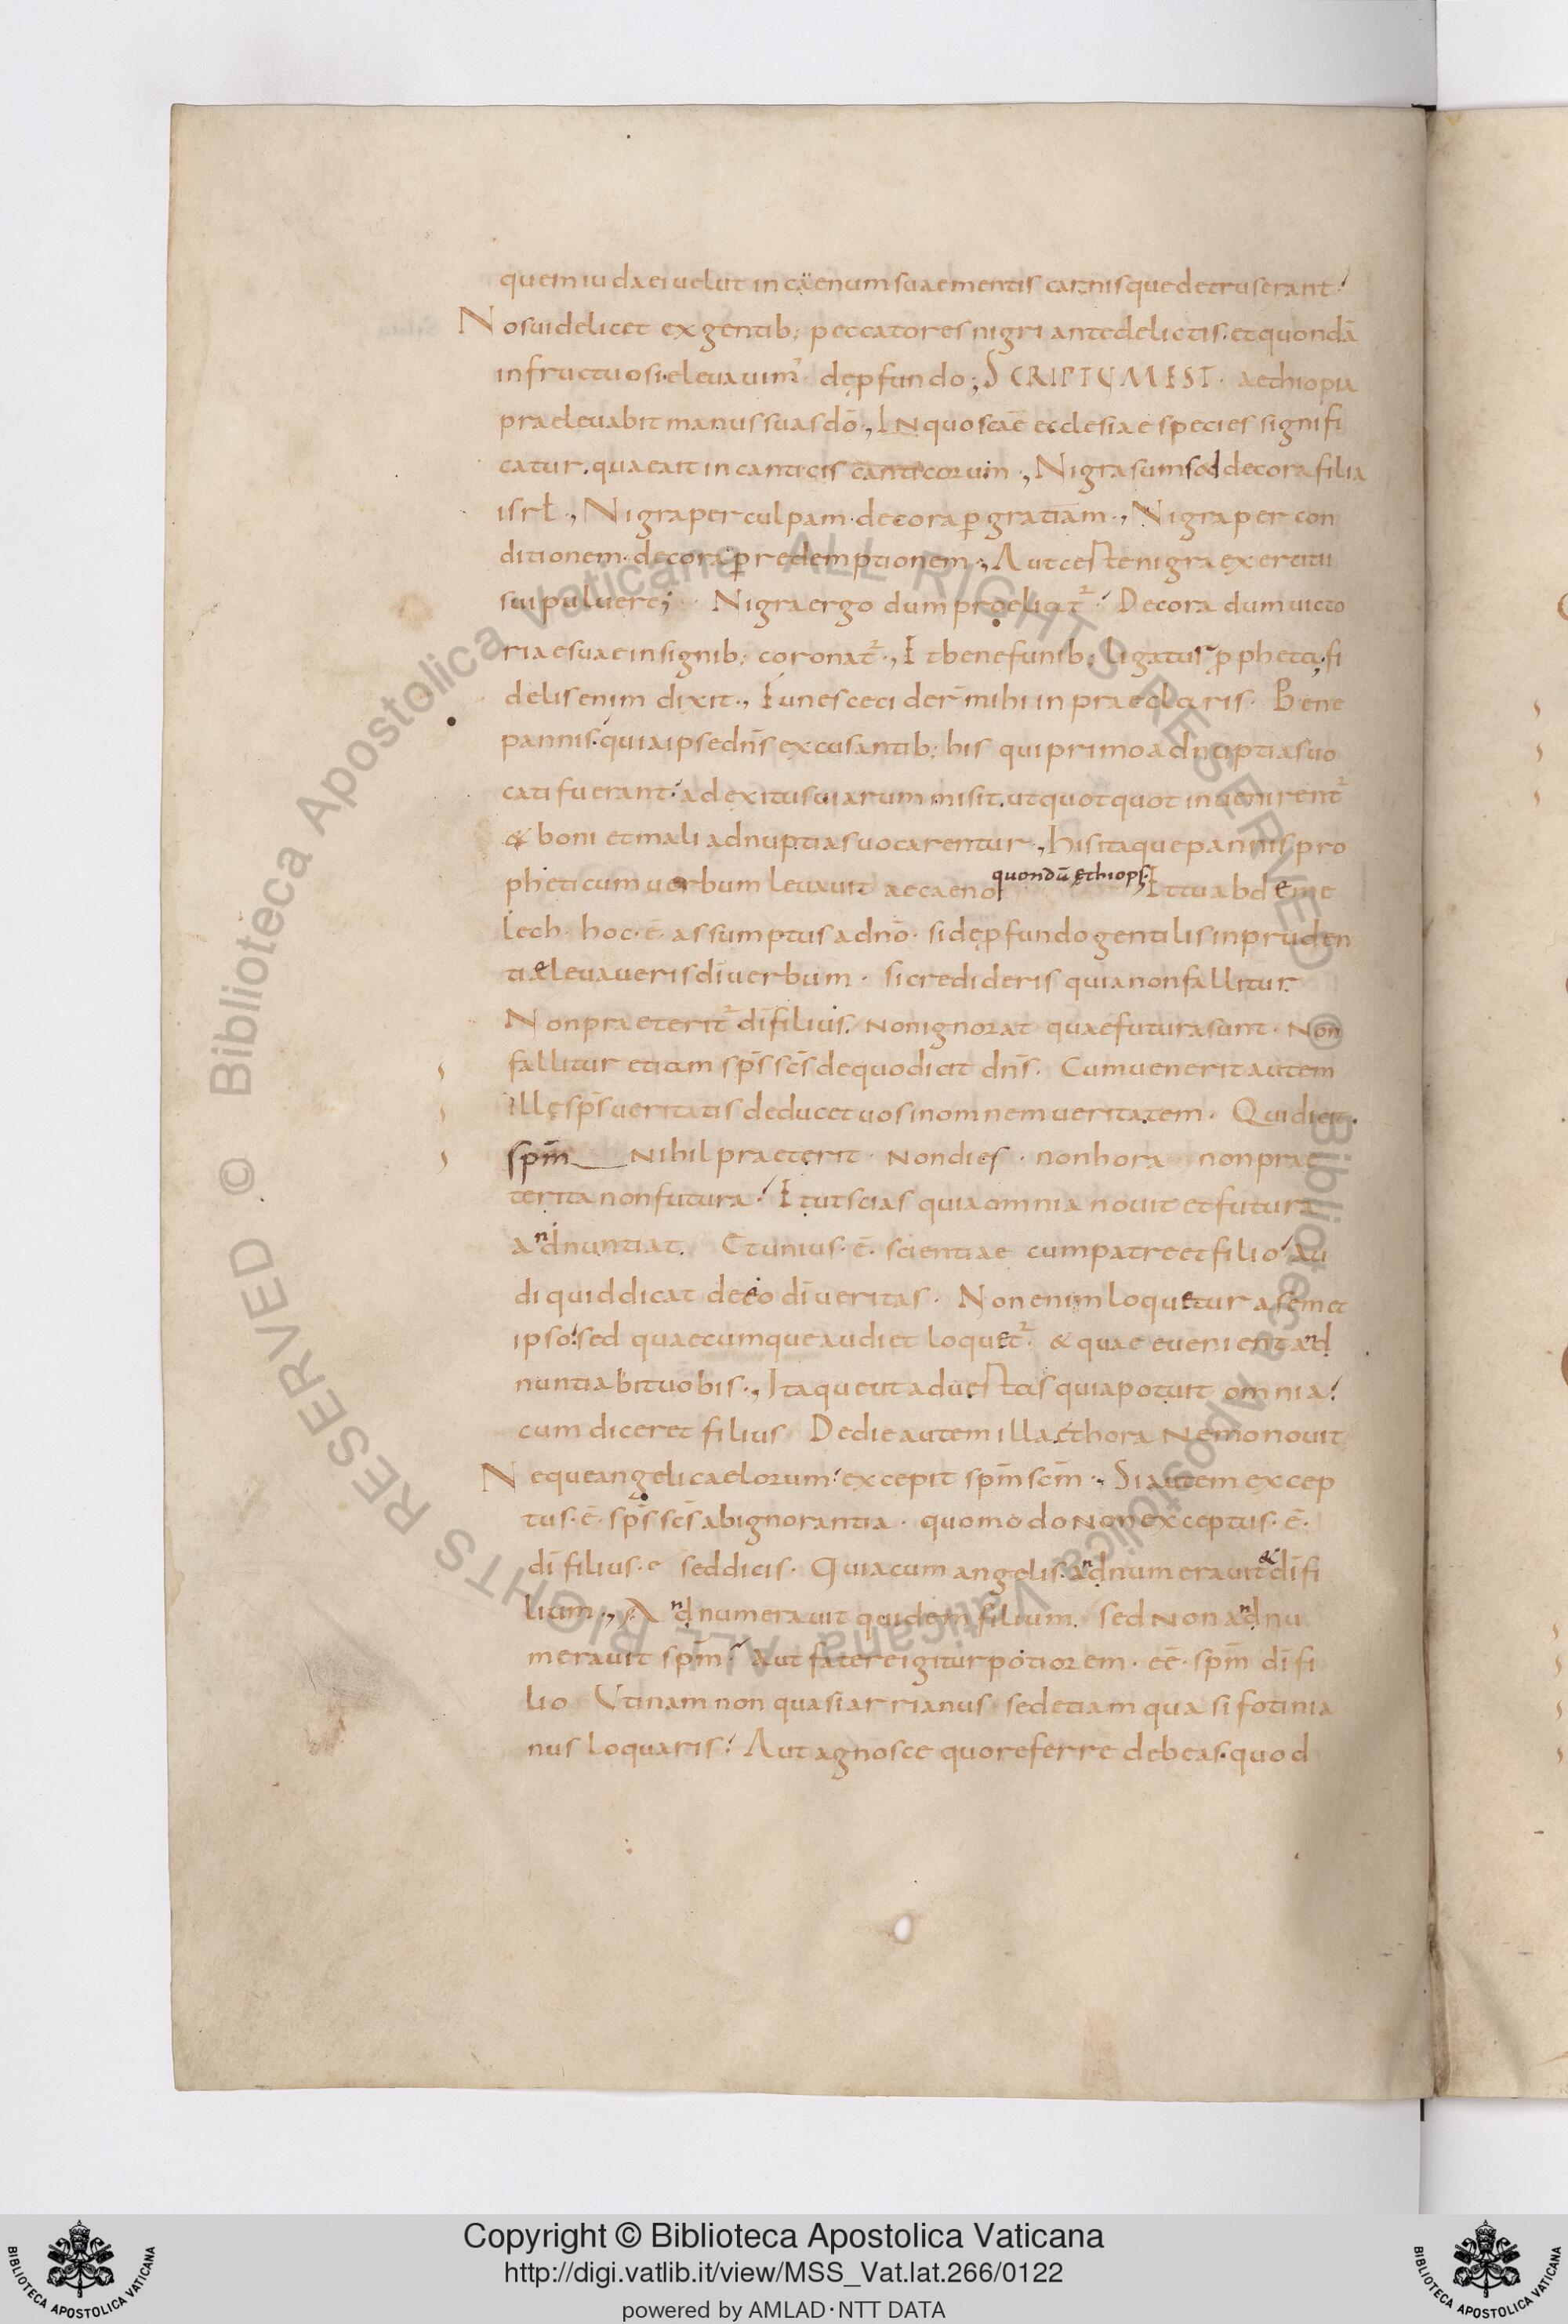 quem iudaei uelut in caenum suae mentis carnisque detruserant·
Nos uidelicet ex gentib; peccatores nigri ante delictis· et quondā
infructuosi· eleuauim᾽ de ꝓfundo; SCRIPTUM EST· aethiopia
praeleuabit manus suas dō·, IN quo scāe ecclesiae species signifi
catur· quae ait in canticis canticorum·, Nigra sum sed decora filia
isrł·, Nigra per culpam· decora ꝑ gratiam·, Nigra per con
ditionem· decora ꝑ redemptionem·, Aut certe nigra exercitii
sui puluere; Nigra ergo dum proeliat᷑· Decora dum uicto
riae suae insignib; coronat᷑·, Et bene funib; ligatur ꝓpheta· fi
delis enim dixit·, Funes cecider̄ mihi in praeclaris· Bene
pannis· quia ipse dn̄s excusantib; his qui primo ad nuptias uo
cati fuerant· ad exitus uiarum misit· ut quotquot inuenirent᷑
& boni et mali ad nuptias uocarentur·, his itaque pannis pro
pheticum uerbum leuauit ae caeno quondā ęthiops· Et tu abdeme
lech· hoc· ē· assumptus a dn̄o· si de ꝓfundo gentilis inpruden
tiae leuaueris dī uerbum· si credideris quia non fallitur
Non praeterit᷑ dī filius· non ignorat quae futura sunt· Non
fallitur etiam sp̄s sc̄s de quo dicit dn̄s· Cum uenerit autem
ille sp̄s ueritatis deducet uos in omnem ueritatem· Qui dicit·
sp̄m nihil praeterit· non dies· non hora non prae
terita non futura· Et ut scias quia omnia nouit et futura
adnuntiat· Et unius· ē· scientiae cum patre et filio· Au
di quid dicat de eo dī ueritas· Non enim loquetur a semet
ipso· sed quaecumque audiet loquet᷑· & quae euenient ad
nuntiabit uobis·, Itaque ut aduertas quia potuit omnia·
cum diceret filius De die autem illa et hora Nemo nouit
Neque angeli caelorum· excepit sp̄m sc̄m·, Si autem excep
tus· ē· sp̄s sc̄s ab ignorantia· quomodo non exceptus· ē·
dī filius· sed dicis· Quia cum angelis· adnumerauit & dī fi
lium·, Adnumerauit quidem filium· sed non adnu
merauit sp̄m· Aut fatere igitur potiorem· eē· sp̄m dī fi
lio Utinam non quasi arrianus sed etiam quasi fotinia
nus loquaris· Aut agnosce quo referre debeas· quod
Copyright © Biblioteca Apostolica Vaticana
http://digi.vatlib.it/view/MSS_Vat.lat.266/0122
powered by AMLAD·NTT DATA
BIBLIOTECA APOSTOLICA VATICANA
BIBLIOTECA APOSTOLICA VATICANA
© Biblioteca Apostolica Vaticana ALL RIGHTS RESERVED
© Biblioteca Apostolica Vaticana ALL RIGHTS RESERVED